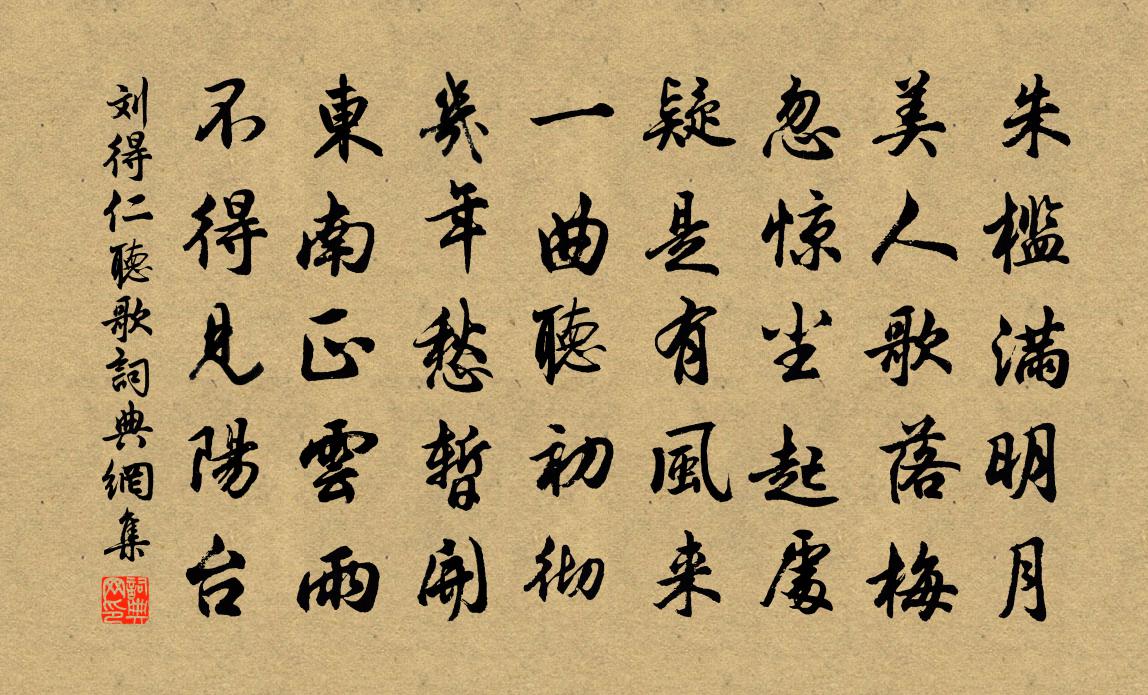 朱檻滿明月
美人歌落梅
忽惊尘起處
疑是有風来
一曲聽初彻
幾年愁暫開
東南正雲雨
不得見陽台
刘得仁聽歌詞典網集
詞典网印